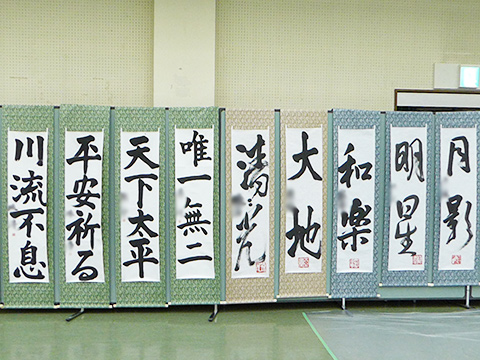 月影
明星
和楽
大地
唯一無二
天下太平
平安祈る
川流不息